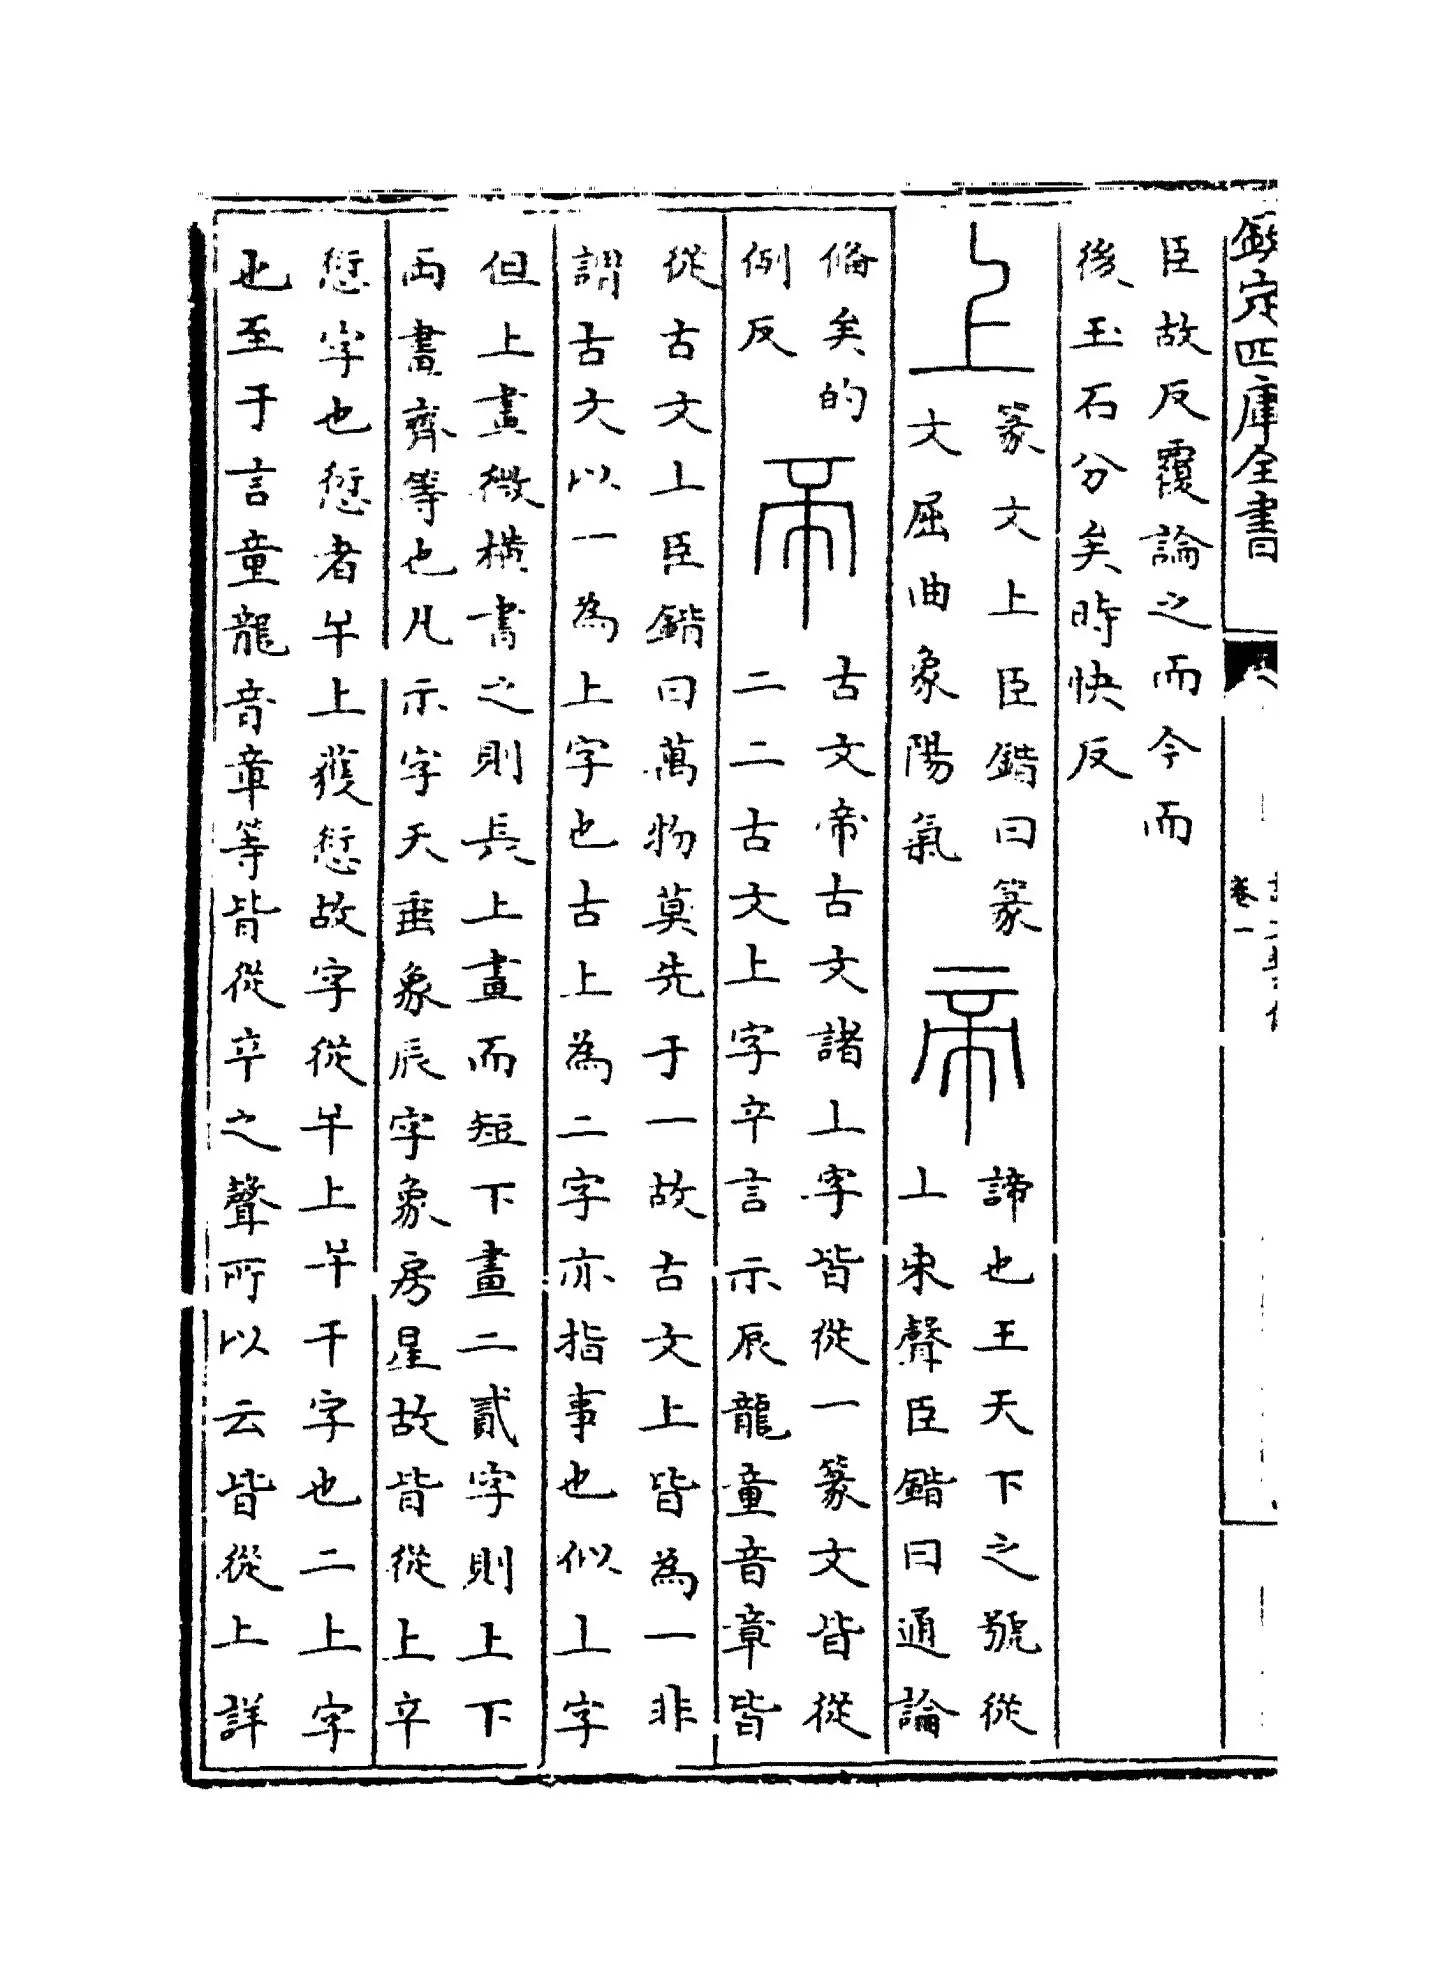 欽定四庫全書
卷一
臣故反覆論之而今而
後玉石分矣時快反
上
篆文上臣鍇曰篆
文屈曲象陽氣
帝
諦也王天下之號從
丄朿聲臣鍇曰通論
備矣的
例反
帝
古文帝古文諸丄字皆從一篆文皆從
二二古文上字䇂言示辰龍童音章皆
從古文丄臣鍇曰萬物莫先于一故古文上皆為一非
謂古文以一為上字也古上為二字亦指事也似丄字
但上畫微橫書之則長上畫而短下畫二貳字則上下
兩畫齊等也凡示字天垂象辰字象房星故皆從上䇂
愆字也愆者干上獲愆故字從干上干干字也二上字
也至于言童龍音章等皆從䇂之聲所以云皆從上詳